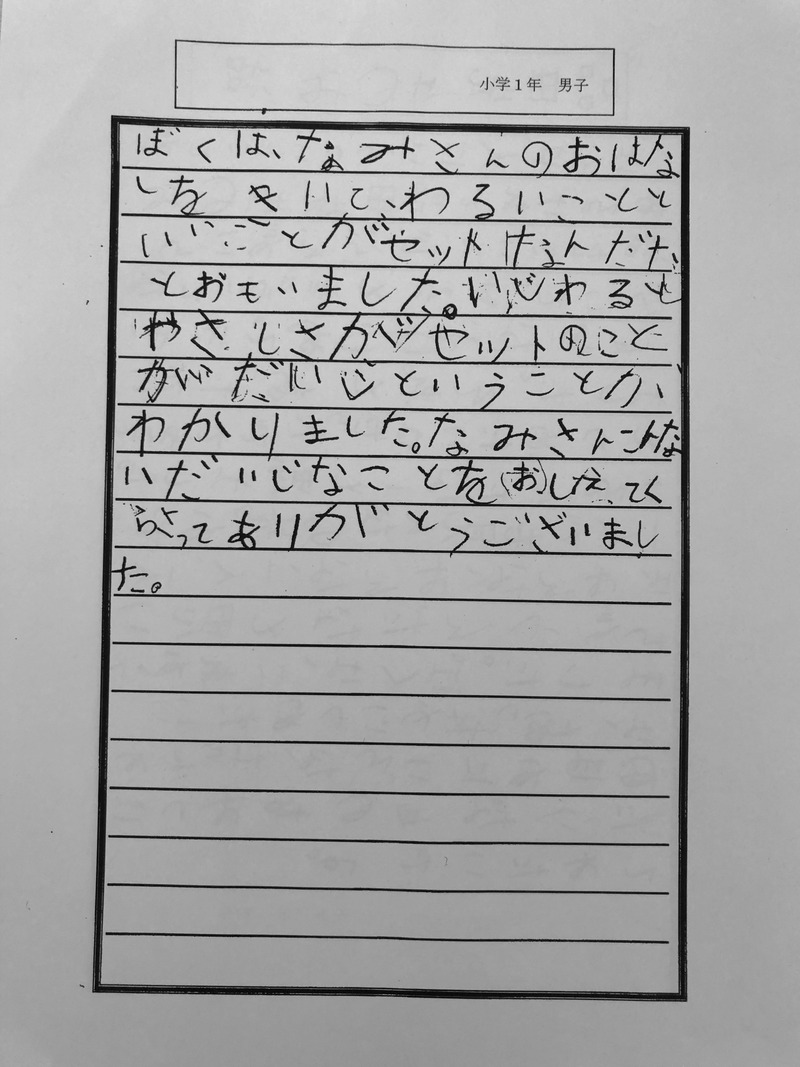 小学1年 男子
ぼくは、なみさんのおはな
しをきいて、わるいことと
いいことがセットなんだな
とおもいました。いじわると
やさしさがセットのこと
がだいじということが
わかりました。なみさんこんな
いだいじなことをおしえてく
ださってありがとうございまし
た。